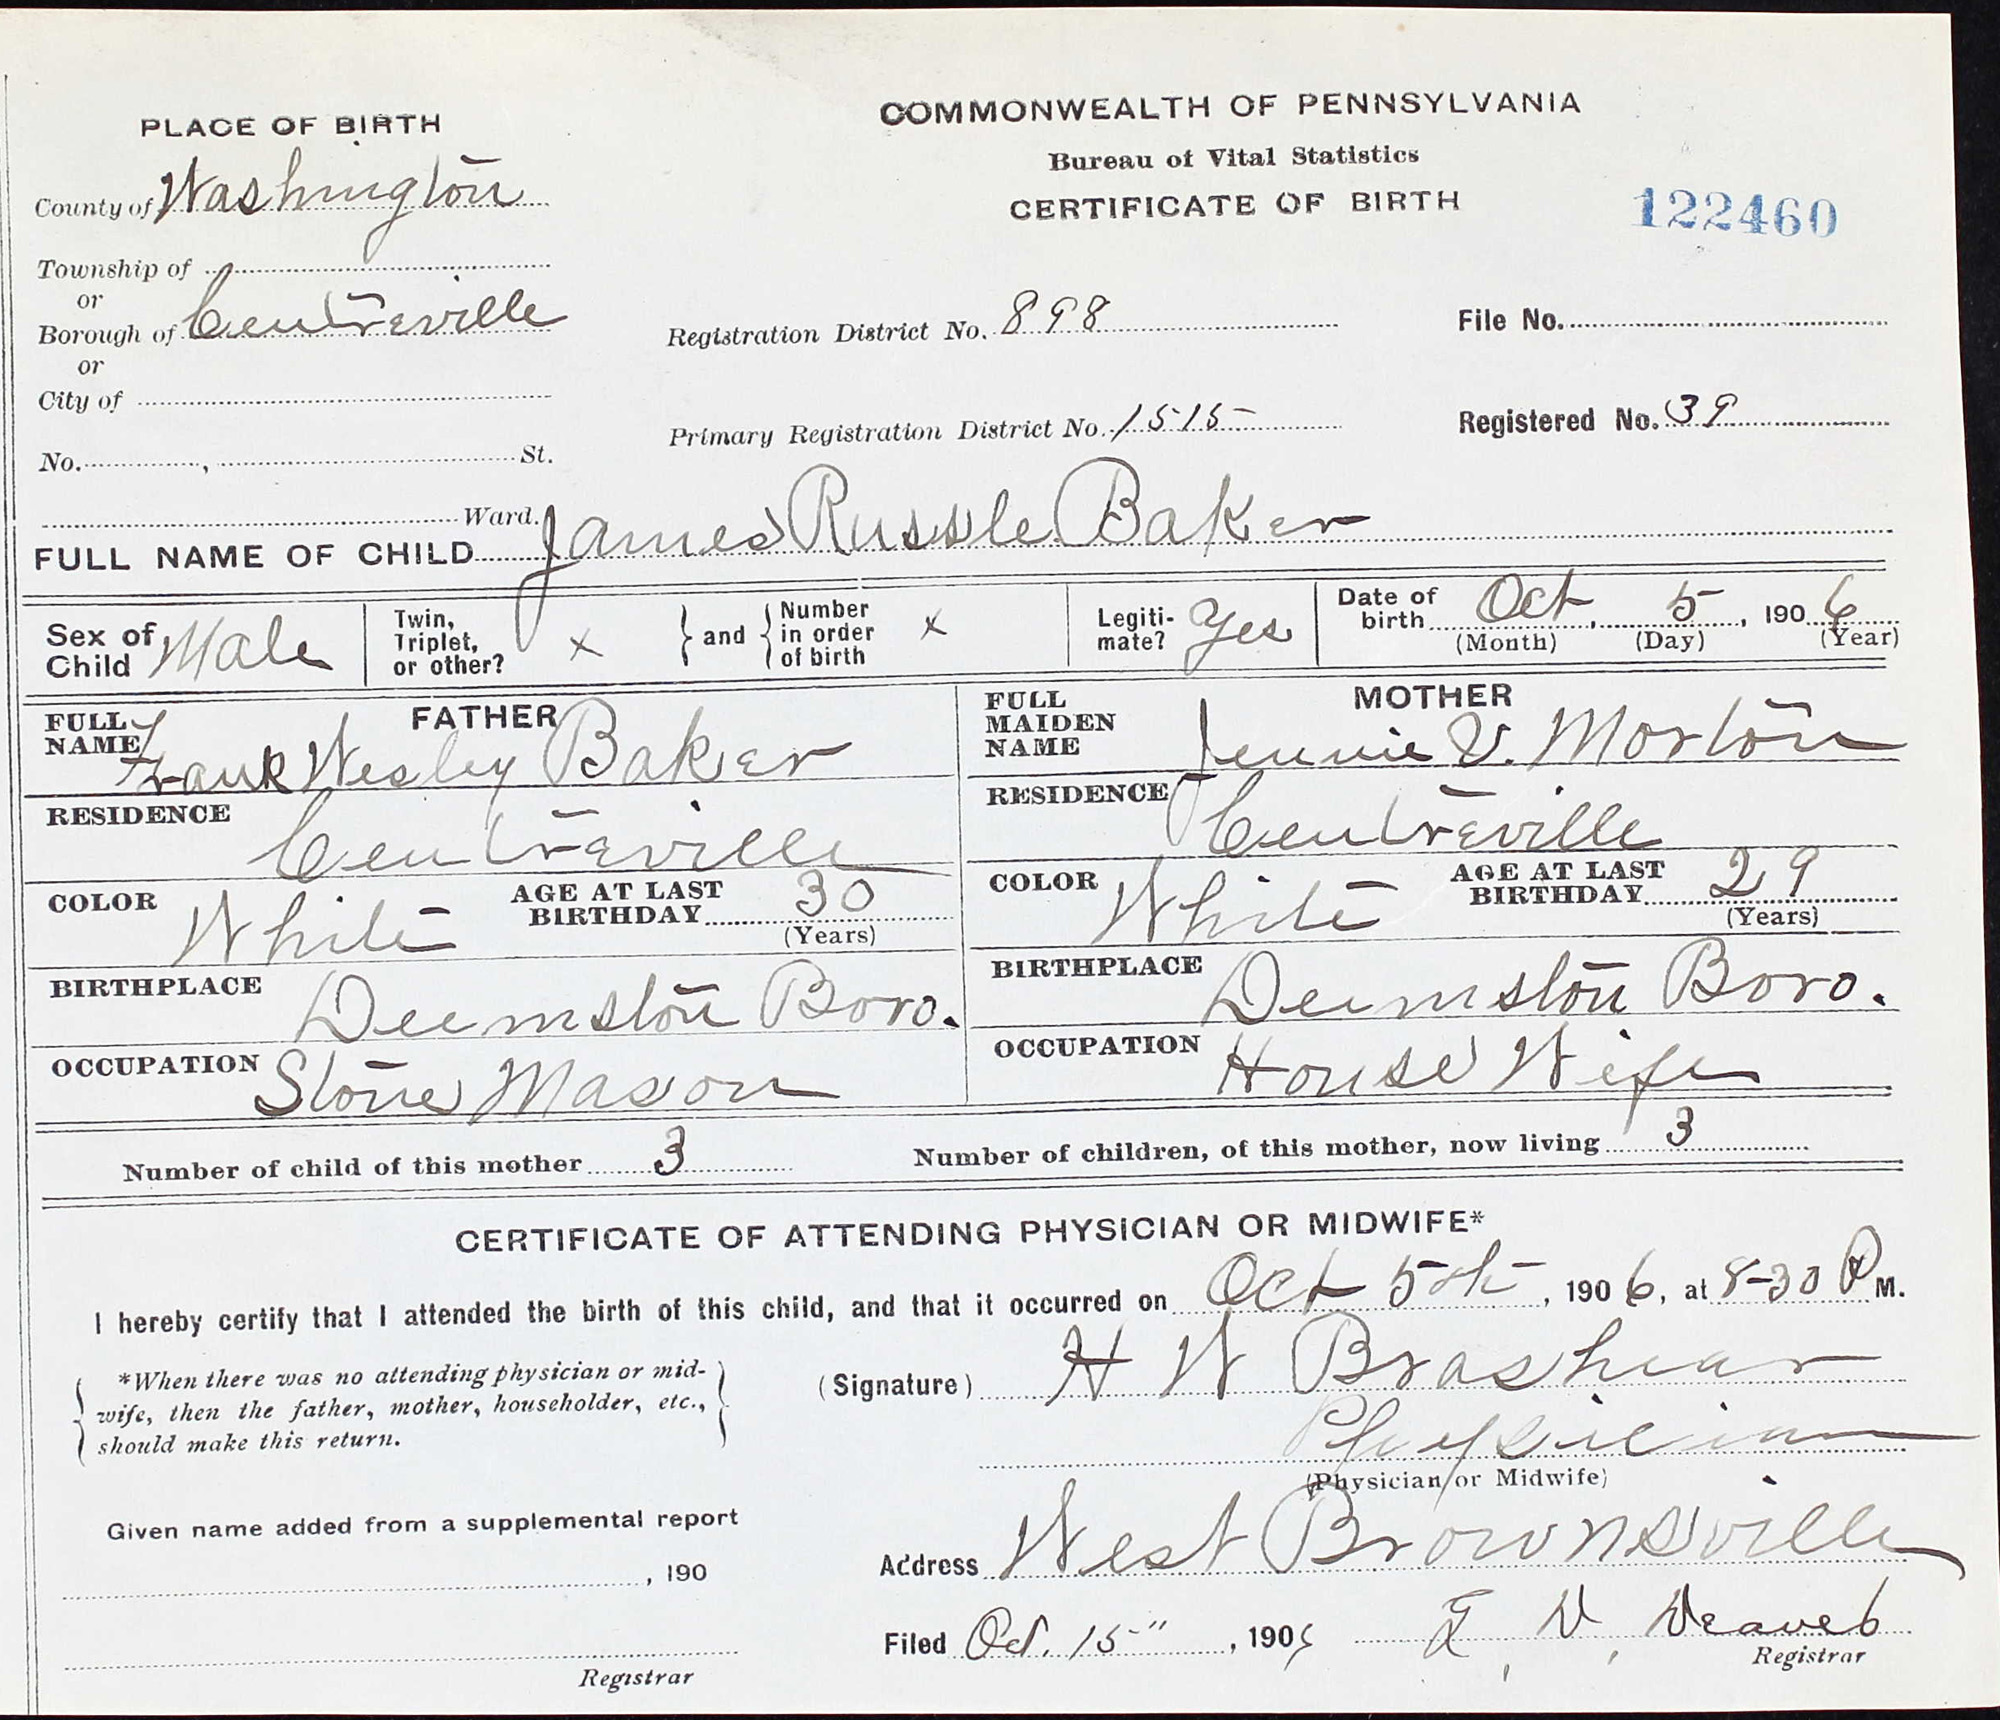 PLACE OF BIRTH
COMMONWEALTH OF PENNSYLVANIA
Bureau of Vital Statistics
CERTIFICATE OF BIRTH
122460
County of Washington
Township of
or
Borough of Centreville
or
City of
No. , St.
Ward.
Registration District No. 898
File No.
Primary Registration District No. 1515
Registered No. 39
FULL NAME OF CHILD James Russle Baker
Sex of Child Male
Twin, Triplet, or other? x
and
Number in order of birth x
Legitimate? Yes
Date of birth Oct, 5, 1906
(Month) (Day) (Year)
FATHER
FULL NAME Frank Wesley Baker
RESIDENCE Centreville
COLOR White
AGE AT LAST BIRTHDAY 30
(Years)
BIRTHPLACE Deemston Boro.
OCCUPATION Stone Mason
MOTHER
FULL MAIDEN NAME Jennie V. Morton
RESIDENCE Centreville
COLOR White
AGE AT LAST BIRTHDAY 29
(Years)
BIRTHPLACE Deemston Boro.
OCCUPATION House Wife
Number of child of this mother 3
Number of children, of this mother, now living 3
CERTIFICATE OF ATTENDING PHYSICIAN OR MIDWIFE*
I hereby certify that I attended the birth of this child, and that it occurred on Oct 5th, 1906, at 8-30 P M.
*When there was no attending physician or mid-
wife, then the father, mother, householder, etc.,
should make this return.
(Signature) H W Brashear
Physician
(Physician or Midwife)
Given name added from a supplemental report
, 190
Registrar
Address West Brownsville
Filed Oct. 15", 1906
Registrar